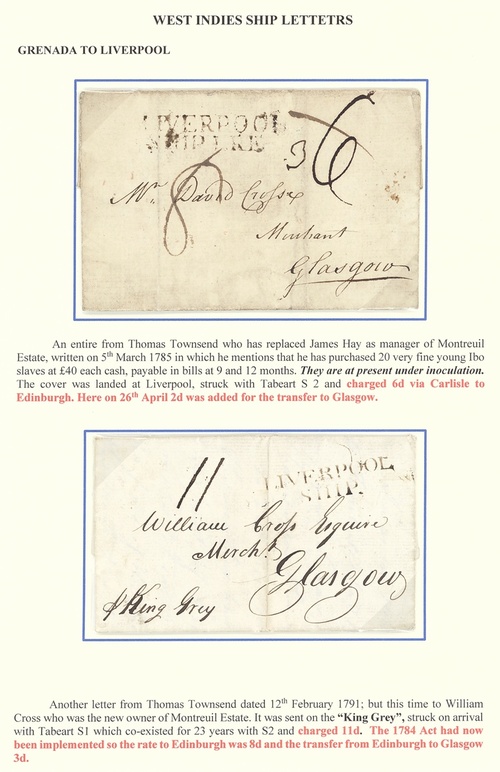 WEST INDIES SHIP LETTETRS
GRENADA TO LIVERPOOL
LIVERPOOL
SHIP LRE
3 6
8
Mr. David Crosse
Merchant
Glasgow
An entire from Thomas Townsend who has replaced James Hay as manager of Montreuil
Estate, written on 5th March 1785 in which he mentions that he has purchased 20 very fine young Ibo
slaves at £40 each cash, payable in bills at 9 and 12 months. They are at present under inoculation.
The cover was landed at Liverpool, struck with Tabeart S 2 and charged 6d via Carlisle to
Edinburgh. Here on 26th April 2d was added for the transfer to Glasgow.
11
LIVERPOOL
SHIP.
William Cross Esquire
Mercht
Glasgow
King Grey
Another letter from Thomas Townsend dated 12th February 1791; but this time to William
Cross who was the new owner of Montreuil Estate. It was sent on the “King Grey”, struck on arrival
with Tabeart S1 which co-existed for 23 years with S2 and charged 11d. The 1784 Act had now
been implemented so the rate to Edinburgh was 8d and the transfer from Edinburgh to Glasgow
3d.